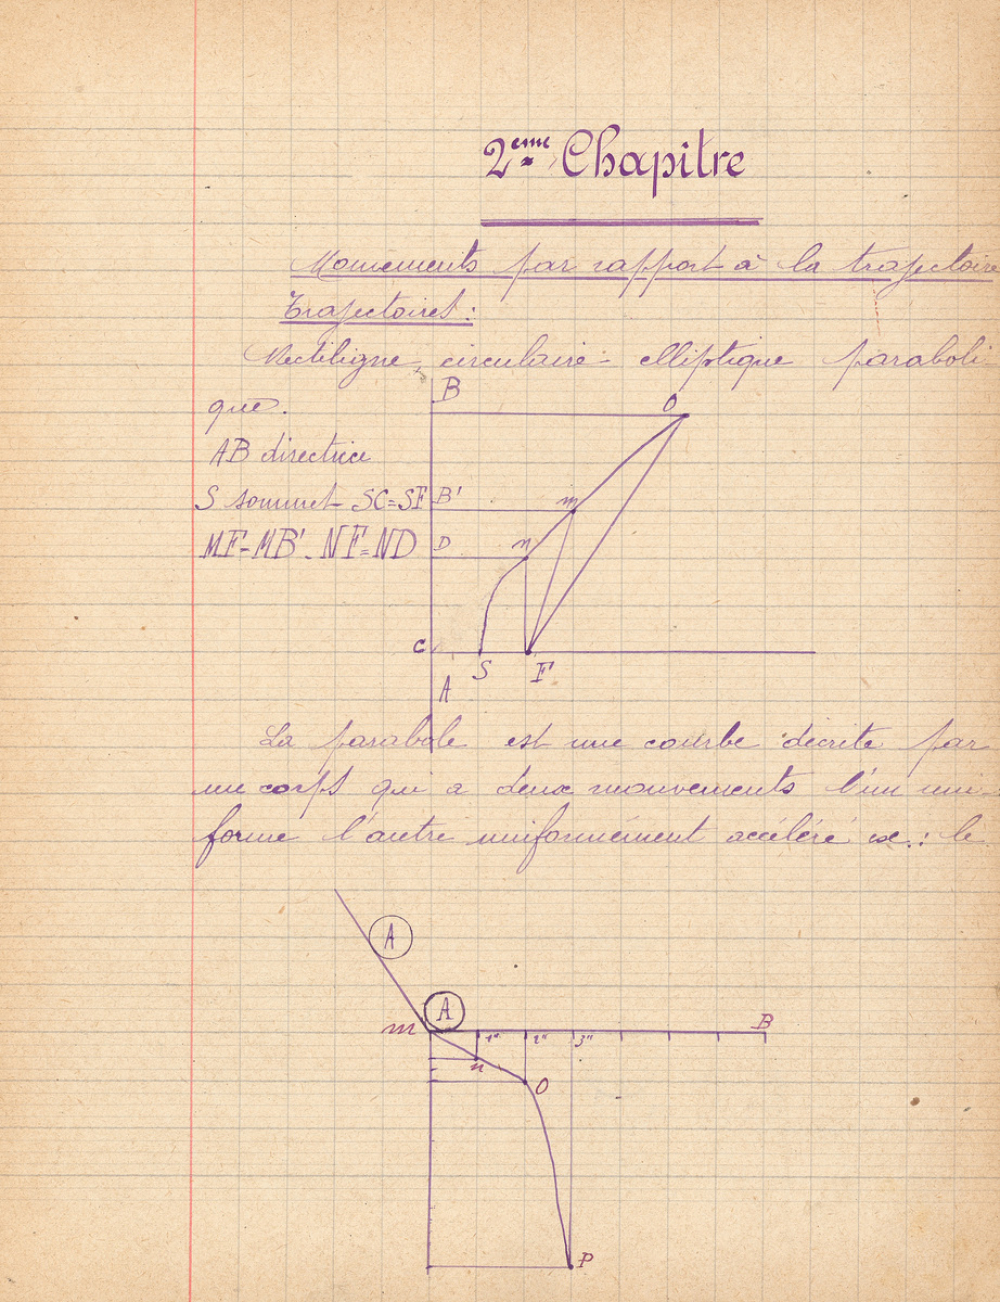 2ème Chapitre
Mouvements par rapport à la trajectoire
Trajectoires :
Rectiligne, circulaire - elliptique paraboli-
que.
AB directrice
S sommet - SC=SF
MF=MB'. NF=ND
B
O
B'
m
D
n
C
S
F
A
La parabole est une courbe décrite par
un corps qui a deux mouvements l'un uni-
forme l'autre uniformément accéléré ex.: le
A
A
m
B
1"
2"
3"
n
O
P